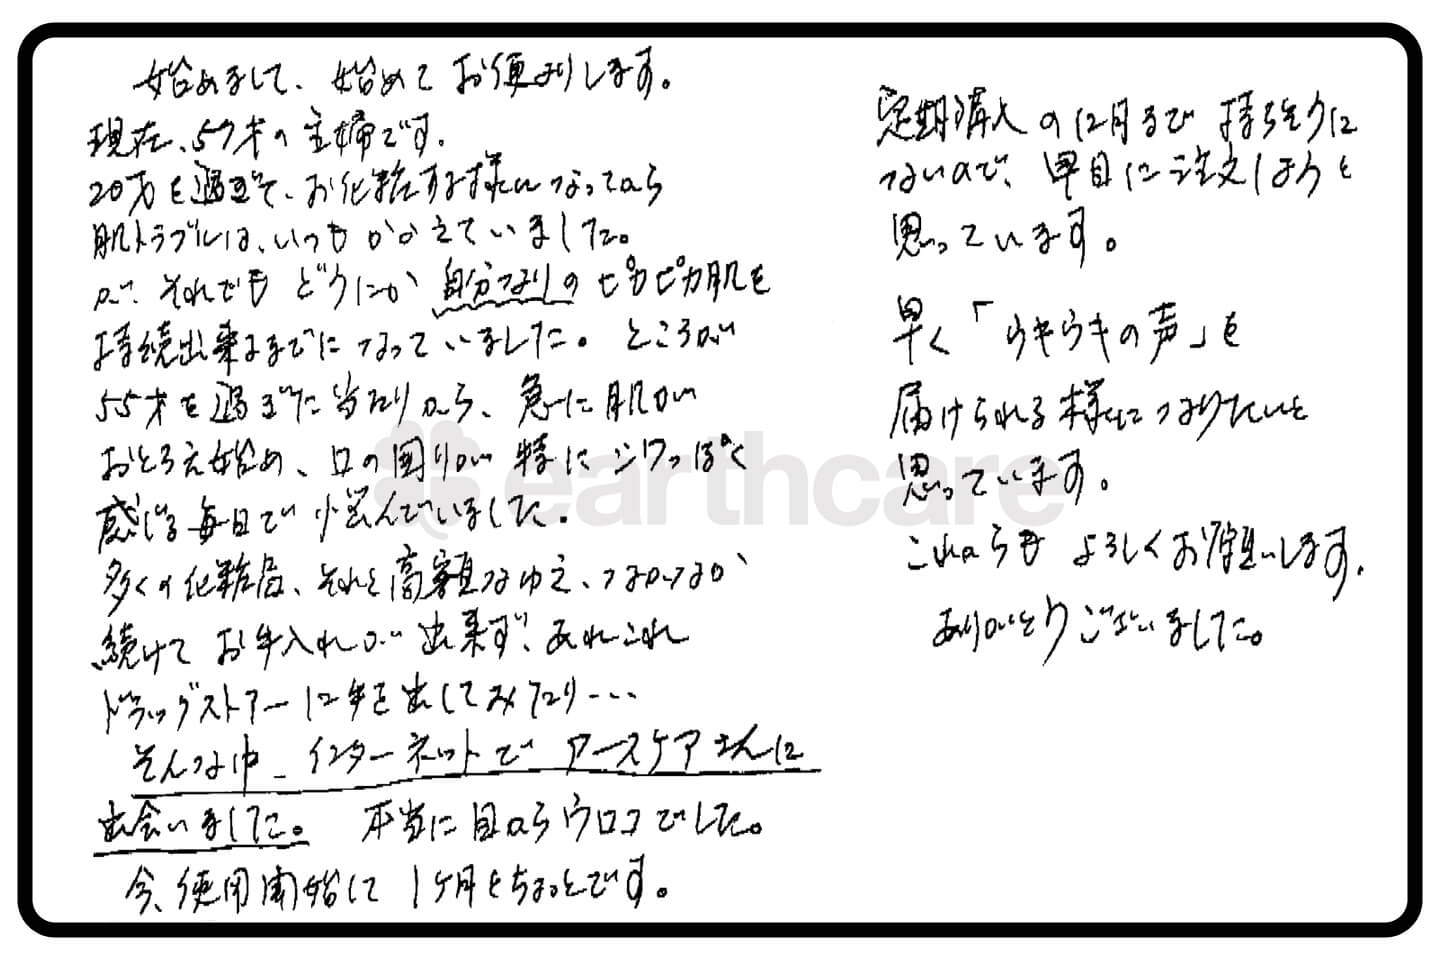 始めまして、始めてお便りします。
現在、57才の主婦です。
20才を過ぎて、お化粧する様になってから
肌トラブルは、いつもかかえていました。
が、それでもどうにか自分なりのピカピカ肌を
持続出来るまでになっていました。ところが
55才を過ぎた当たりから、急に肌が
おとろえ始め、口の周りが特にシワっぽく
感じる毎日で悩んでいました。
多くの化粧品、それと高額なゆえ、なかなか
続けてお手入れが出来ず、あれこれ
ドラッグストアーに手を出してみたり...
そんな中_インターネットでアースケアさんに
出会いました。 本当に目からウロコでした。
今、使用開始して1ケ月とちょっとです。
定期購入の12月まで持ちそうに
ないので、早目に注文しようと
思っています。
早く「ウキウキの声」を
届けられる様になりたいと
思っています。
これからもよろしくお願いします。
ありがとうございました。
earthcare